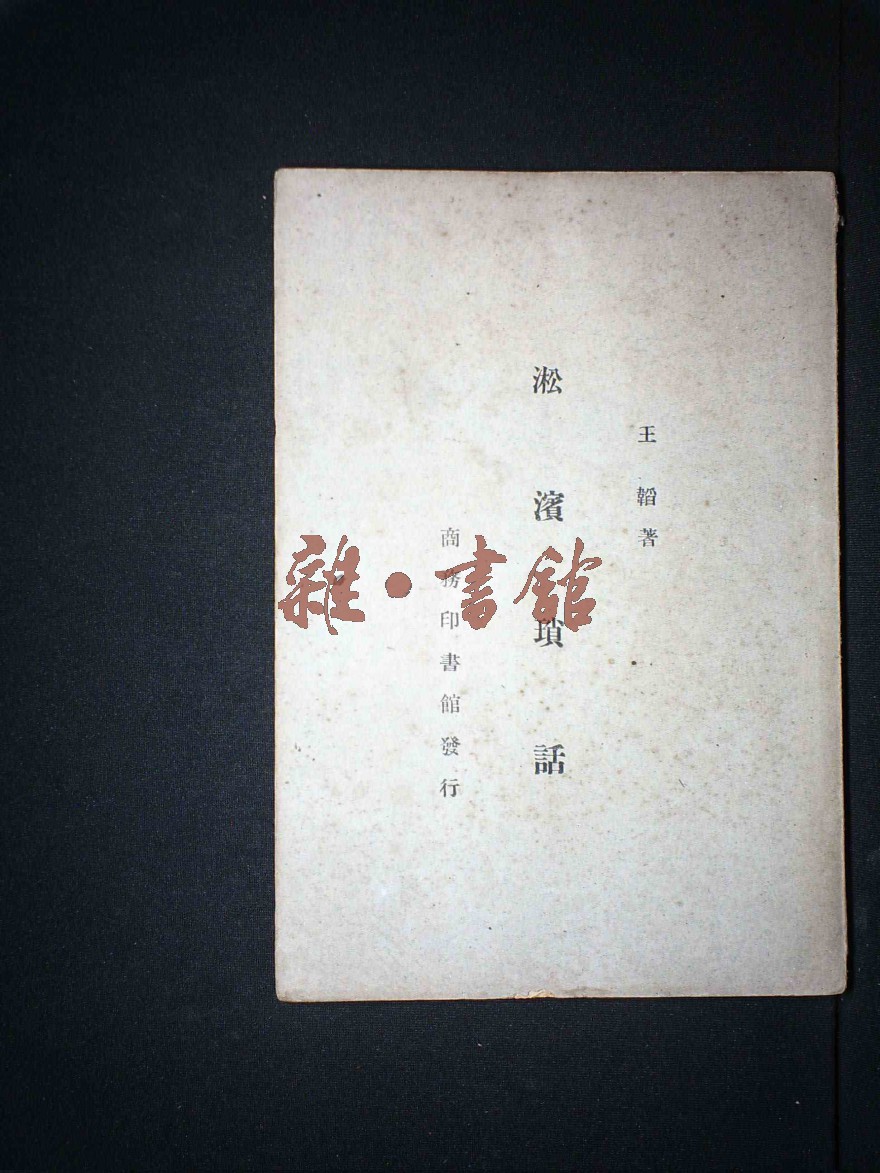 王韜著
淞濱瑣話
商務印書館發行
雜·書館